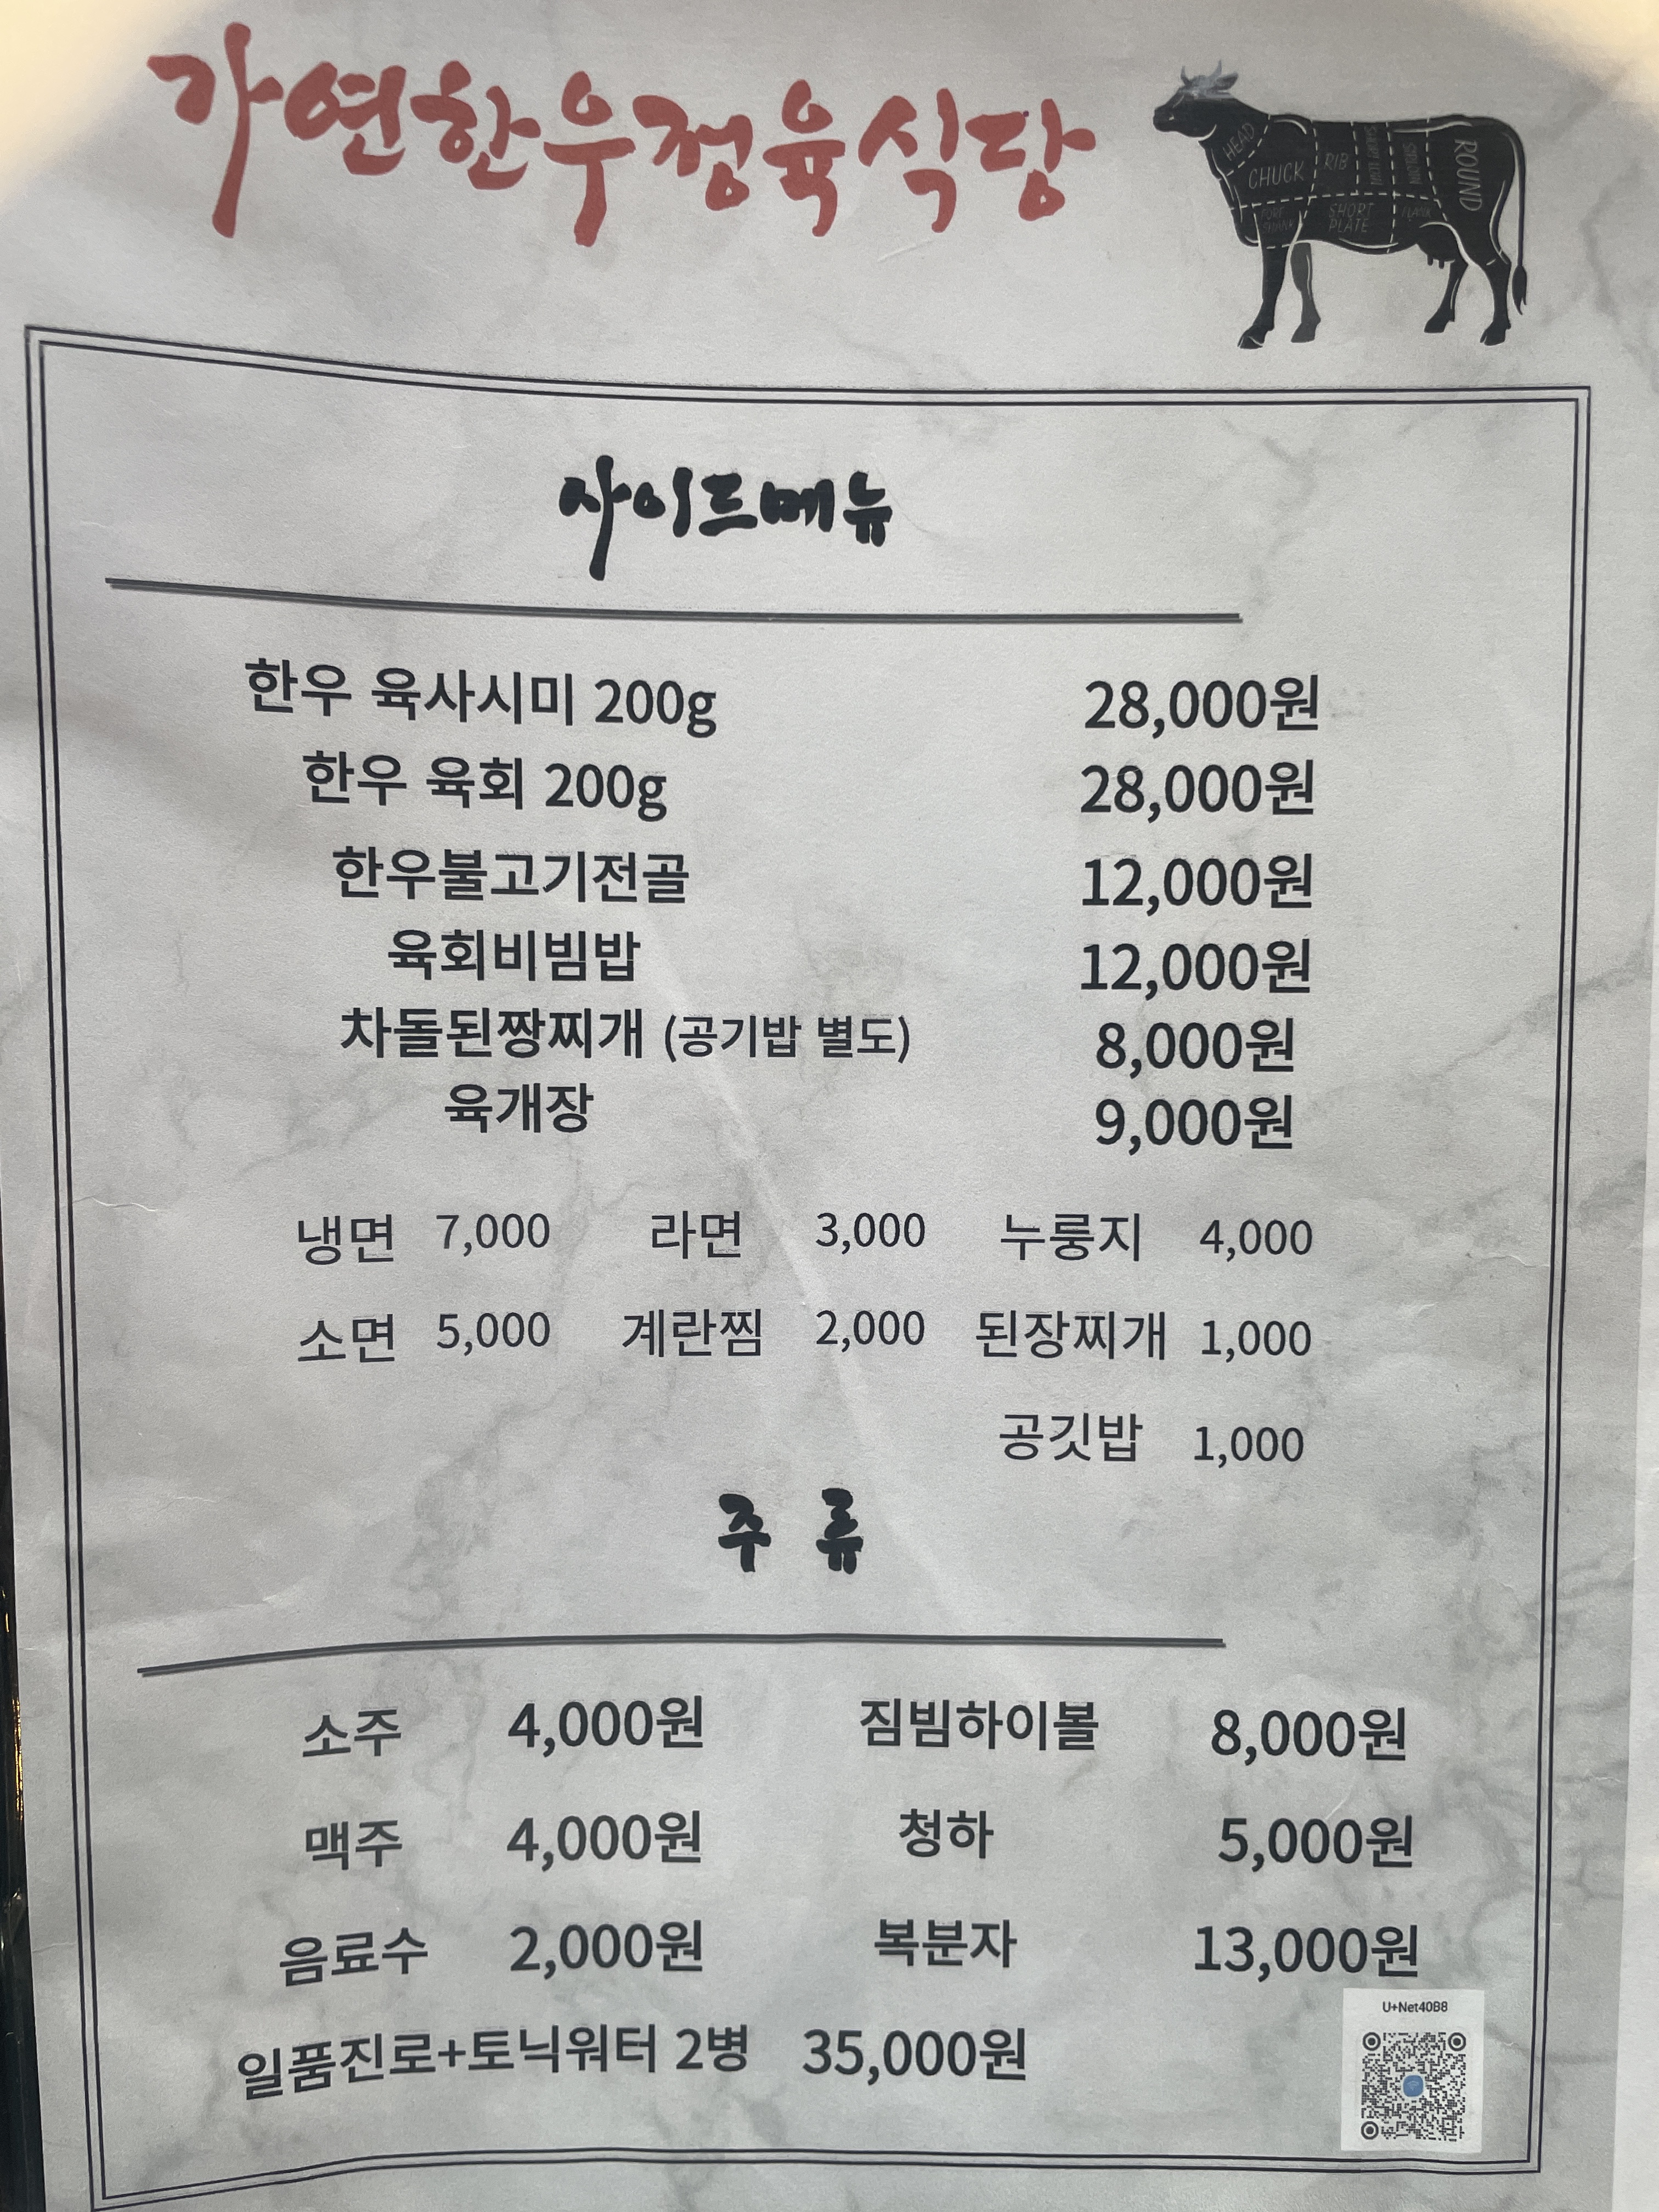 가연한우정육식당
HEAD
CHUCK
RIB
SHORT LOIN
SIRLOIN
ROUND
FORE SHANK
SHORT PLATE
FLANK
사이드메뉴
한우 육사시미 200g 28,000원
한우 육회 200g 28,000원
한우불고기전골 12,000원
육회비빔밥 12,000원
차돌된짱찌개 (공기밥 별도) 8,000원
육개장 9,000원
냉면 7,000 라면 3,000 누룽지 4,000
소면 5,000 계란찜 2,000 된장찌개 1,000
공깃밥 1,000
주 류
소주 4,000원 짐빔하이볼 8,000원
맥주 4,000원 청하 5,000원
음료수 2,000원 복분자 13,000원
일품진로+토닉워터 2병 35,000원
U+Net40B8